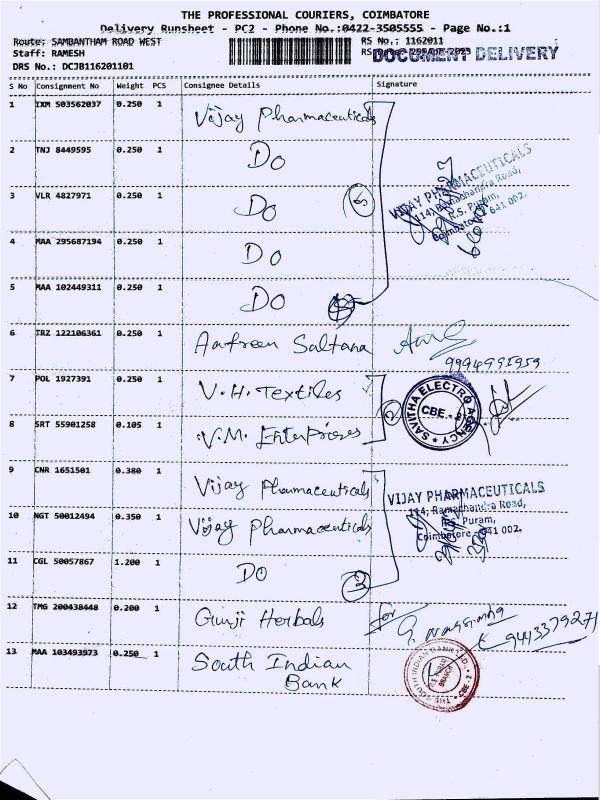 THE PROFESSIONAL COURIERS, COIMBATORE
Delivery Runsheet - PC2 - Phone No.:0422-3505555 - Page No.:1
Route: SAMBANTHAM ROAD WEST
RS No.: 1162011
Staff: RAMESH
DOCUMENT DELIVERY
DRS No.: DCJB116201101
S No Consignment No Weight PCS Consignee Details Signature
1 IXM 503562037 0.250 1 Vijay Pharmaceuticals
2 TNJ 8449595 0.250 1 Do
3 VLR 4827971 0.250 1 Do
4 MAA 295687194 0.250 1 Do
5 MAA 102449311 0.250 1 Do
VIJAY PHARMACEUTICALS
114, Ramachandra Road,
R.S. Puram,
Coimbatore - 641 002.
6 TRZ 122106361 0.250 1 Aafreen Saltana
9994991959
7 POL 1927391 0.250 1 V.H. Textiles
8 SRT 55901258 0.105 1 V.M. Enterprises
SAVITHA ELECTRO AGENCY
CBE - 2
9 CNR 1651501 0.380 1 Vijay Pharmaceuticals
10 NGT 50012494 0.350 1 Vijay Pharmaceuticals
11 CGL 50057867 1.200 1 Do
3
VIJAY PHARMACEUTICALS
114, Ramachandra Road,
R.S. Puram,
Coimbatore - 641 002.
12 TMG 200438448 0.200 1 Gunji Herbals
for
9443379271
13 MAA 103493973 0.250 1 South Indian
Bank
THE SOUTH INDIAN BANK LTD. CBE-2
R.S. PURAM
BRANCH